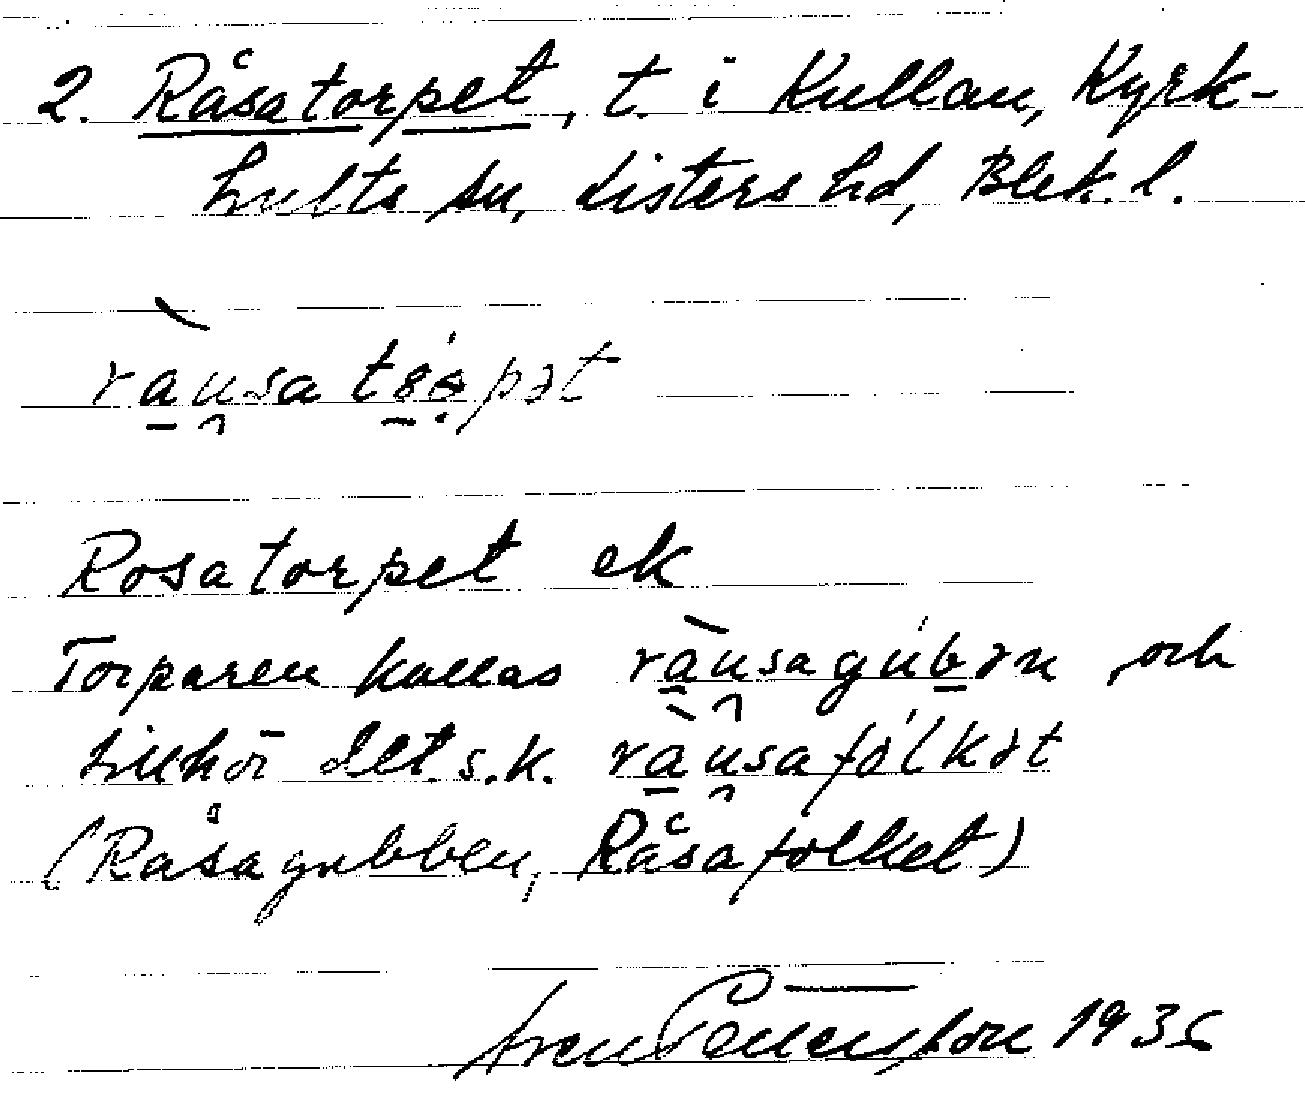 2. Råsatorpet, t. i Kullan, Kyrk-
hults sn, Listers hd, Blek. l.
Rosatorpet ek
Torparen kallas ràu̯sagúbən, och
tillhör det s.k. ràu̯safólkət
(Råsagubben, Råsafolket)
Sven Benson 1936